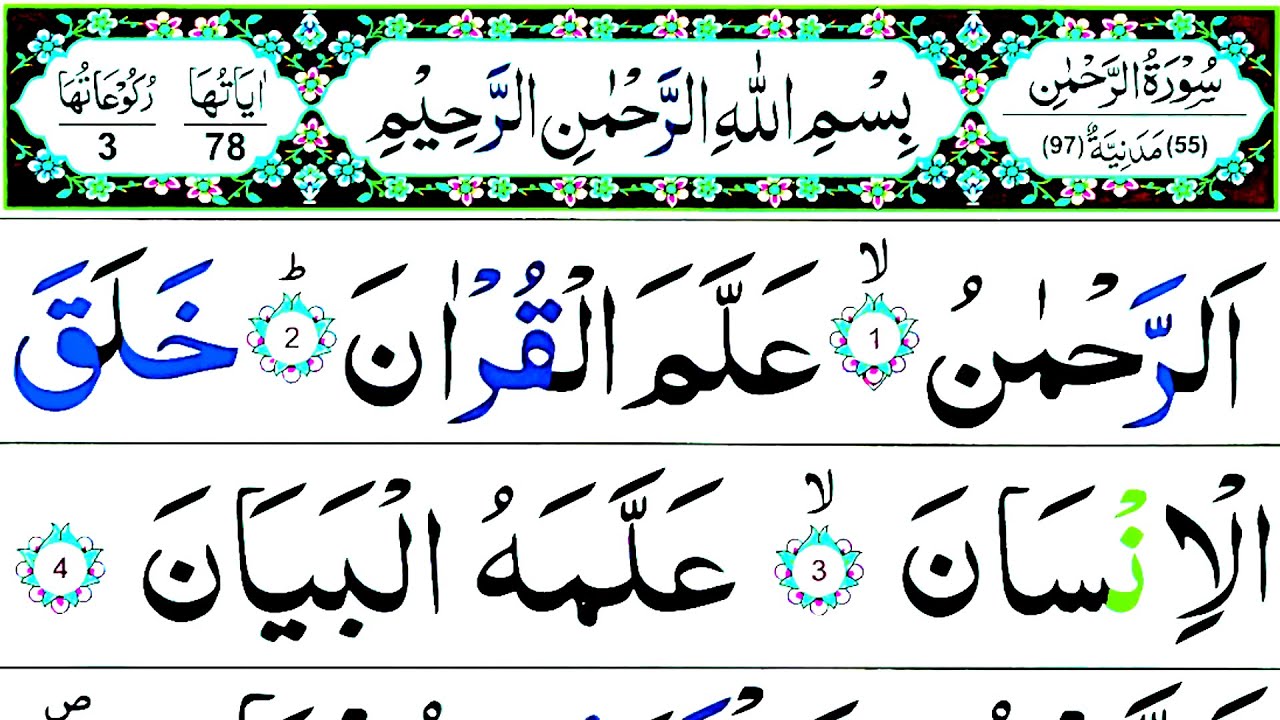 سُوْرَةُ الرَّحْمٰنِ
(55) مَدَنِيَّةٌ (97)
بِسْمِ اللّٰهِ الرَّحْمٰنِ الرَّحِيْمِ
اٰيَاتُهَا 78
رُكُوْعَاتُهَا 3
اَلرَّحْمٰنُ ۙ 1 عَلَّمَ الْقُرْاٰنَ ؕ 2 خَلَقَ
الْاِنْسَانَ ۙ 3 عَلَّمَهُ الْبَيَانَ 4